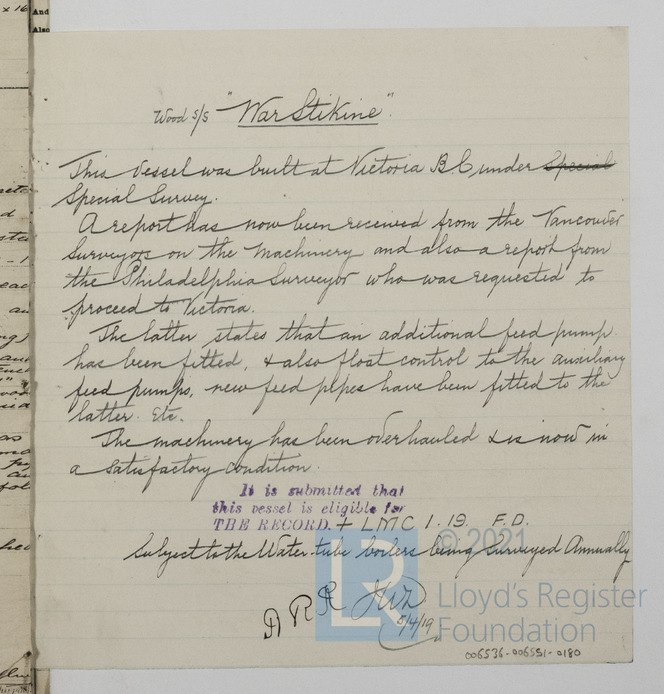 x 16
And
Also
Wood S/S "War Stikine"
This vessel was built at Victoria B.C. under Special
Special Survey.
A report has now been received from the Vancouver
Surveyors on the machinery and also a report from
the Philadelphia Surveyor who was requested to
proceed to Victoria.
The latter states that an additional feed pump
has been fitted, & also float control to the auxiliary
feed pumps, new feed pipes have been fitted to the
latter. Etc.
The machinery has been overhauled & is now in
a satisfactory condition.
It is submitted that
this vessel is eligible for
THE RECORD. + LMC 1.19. F.D.
Subject to the Water-tube boilers being surveyed Annually
© 2021
LR
Lloyd's Register
Foundation
5/4/19
006536-006551-0180